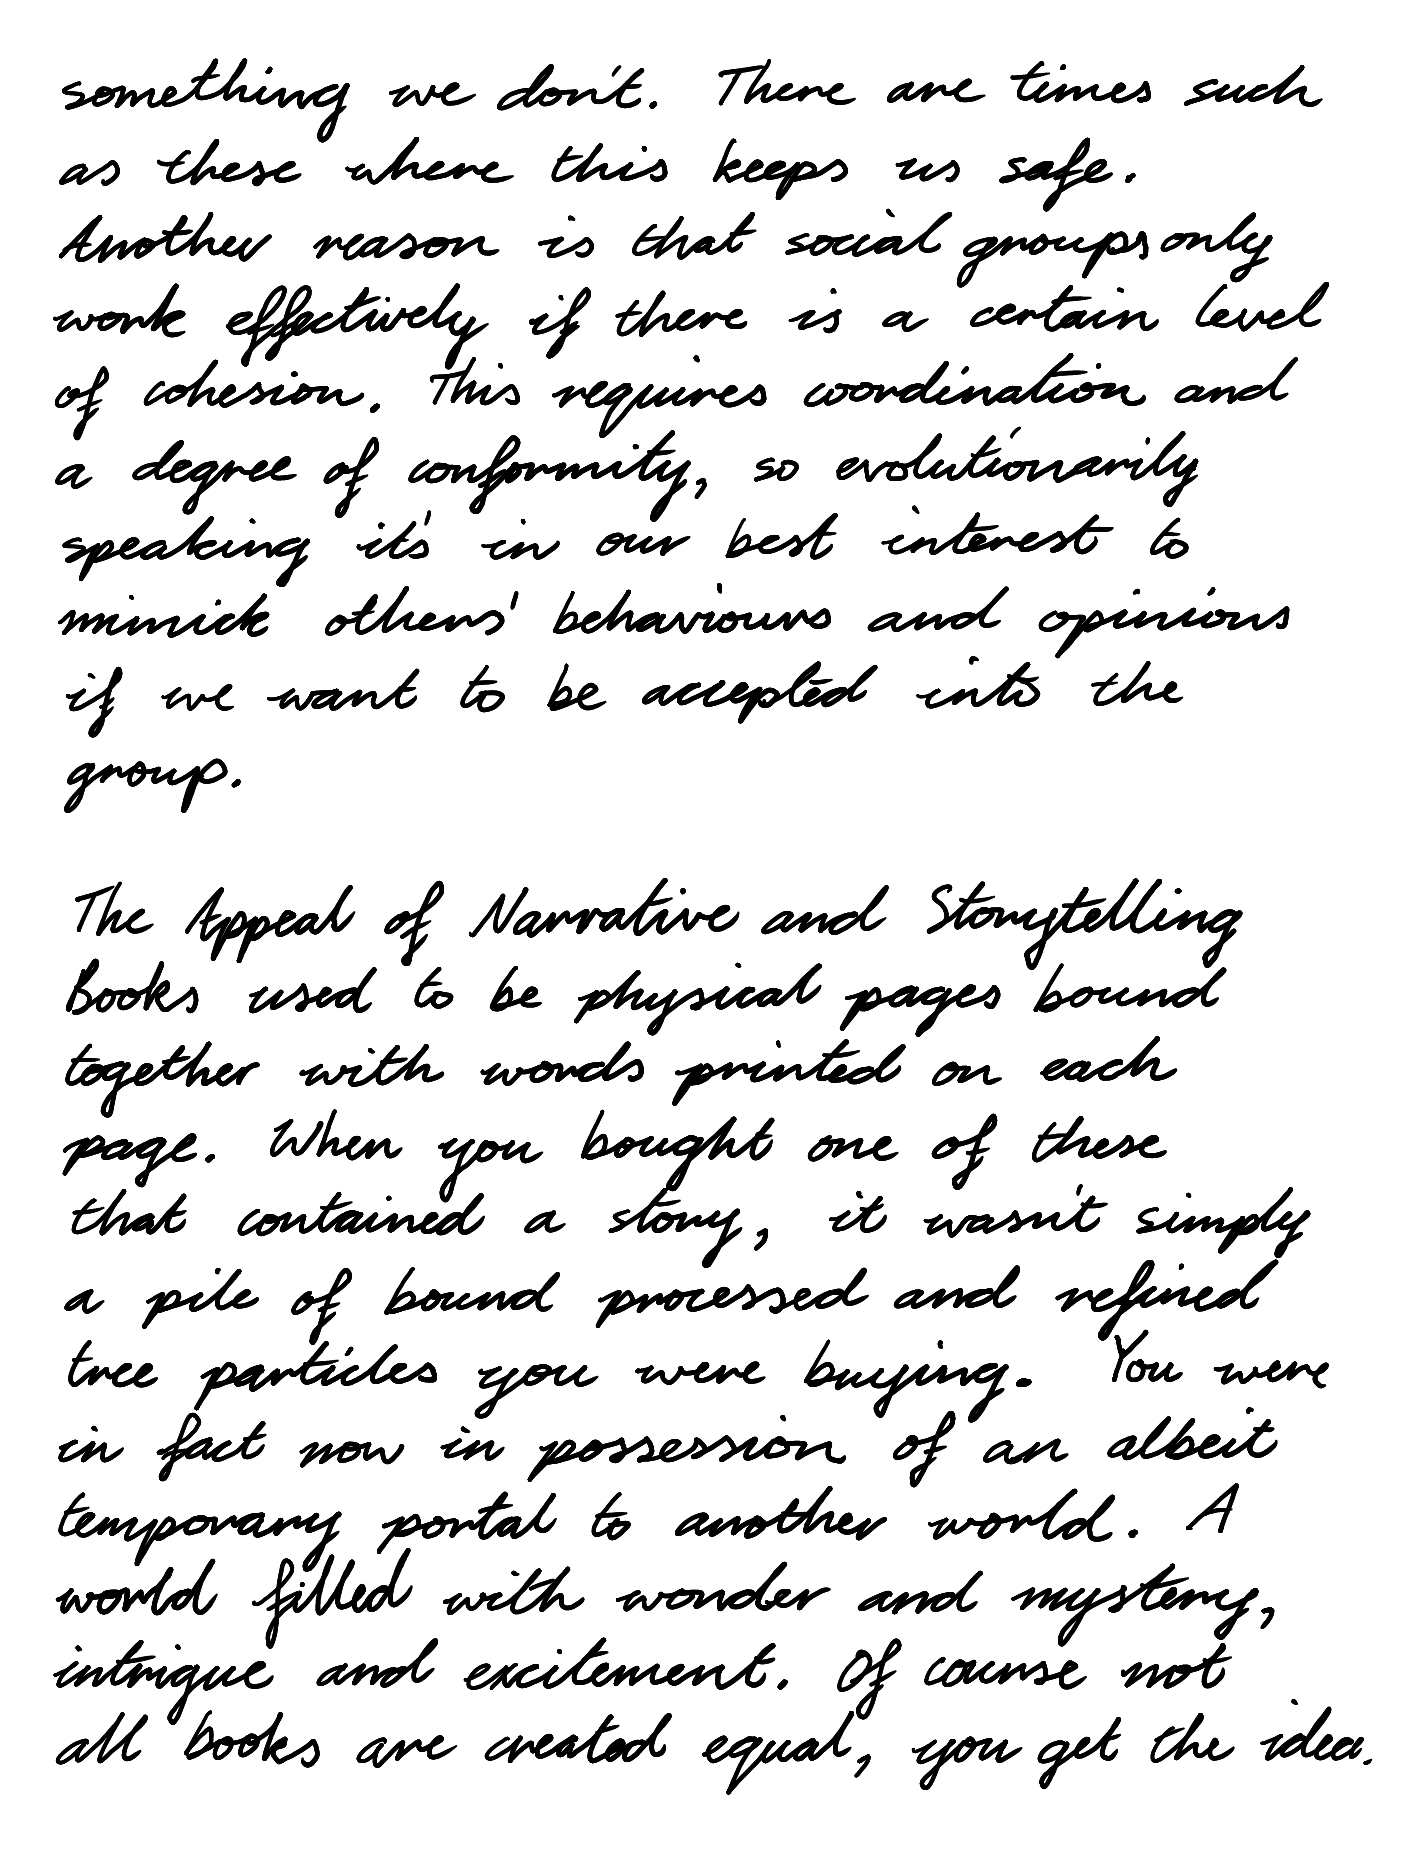 something we don't. There are times such
as these where this keeps us safe.
Another reason is that social groups only
work effectively if there is a certain level
of cohesion. This requires coordination and
a degree of conformity, so evolutionarily
speaking it's in our best interest to
mimick others' behaviours and opinions
if we want to be accepted into the
group.

The Appeal of Narrative and Storytelling
Books used to be physical pages bound
together with words printed on each
page. When you bought one of these
that contained a story, it wasn't simply
a pile of bound processed and refined
tree particles you were buying. You were
in fact now in possession of an albeit
temporary portal to another world. A
world filled with wonder and mystery,
intrigue and excitement. Of course not
all books are created equal, you get the idea.